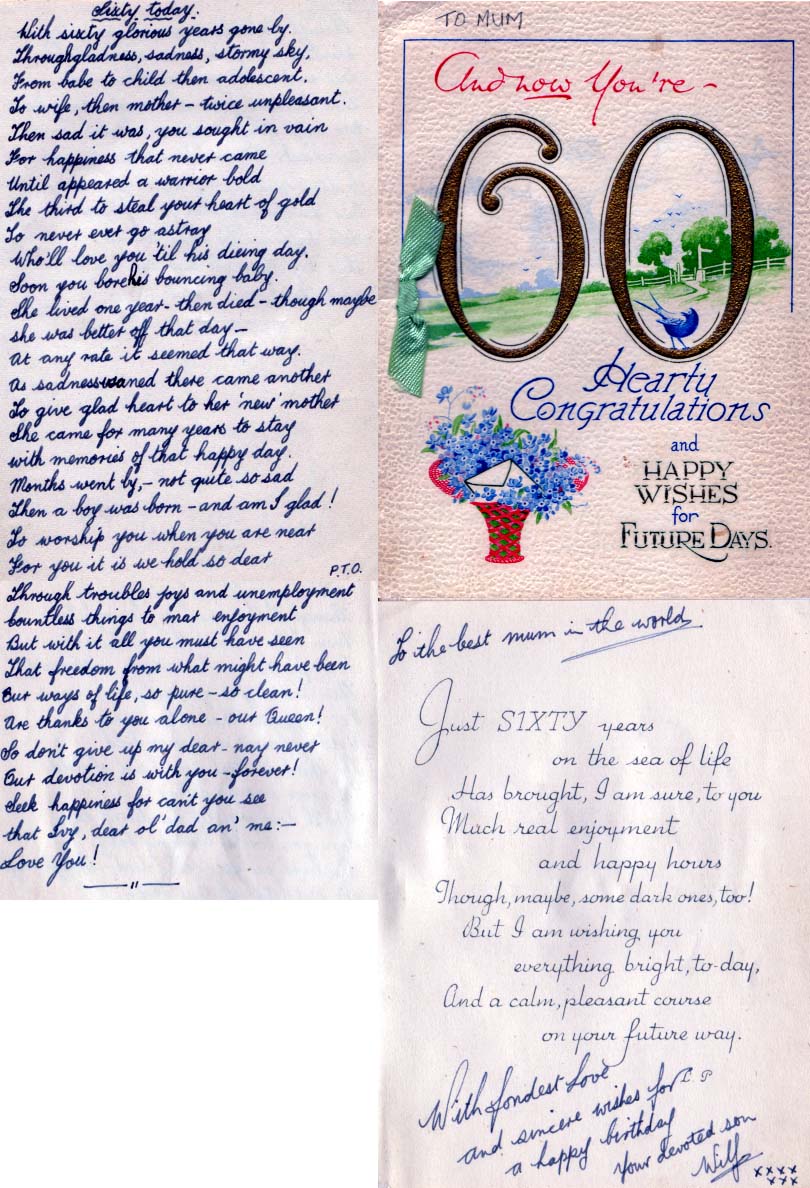 Sixty today.
With sixty glorious years gone by.
Through gladness, sadness, stormy sky,
From babe to child then adolescent.
To wife, then mother - twice unpleasant.
Then sad it was, you sought in vain
For happiness that never came
Until appeared a warrior bold
The third to steal your heart of gold
To never ever go astray
Who'll love you 'til his dieing day.
Soon you bore his bouncing baby.
She lived one year - then died - though maybe
she was better off that day -
At any rate it seemed that way.
As sadness waned there came another
To give glad heart to her 'new' mother
She came for many years to stay
with memories of that happy day.
Months went by, - not quite so sad
Then a boy was born - and am I glad!
To worship you when you are near
For you it is we hold so dear
P.T.O.
Through troubles joys and unemployment
Countless things to mar enjoyment
But with it all you must have seen
That freedom from what might have been
Our ways of life, so pure - so clean!
Are thanks to you alone - our Queen!
So don't give up my dear - nay never
Our devotion is with you - forever!
Seek happiness for can't you see
that Ivy, dear ol' dad an' me:-
Love You!
TO MUM
And now You're -
60
Hearty
Congratulations
and
HAPPY
WISHES
for
FUTURE DAYS.
To the best mum in the world.
Just SIXTY years
on the sea of life
Has brought, I am sure, to you
Much real enjoyment
and happy hours
Though, maybe, some dark ones, too!
But I am wishing you
everything bright, to-day,
And a calm, pleasant course
on your future way.
With fondest Love
and sincere wishes for
a happy birthday
your devoted son
Wilf
xxxx
xxx